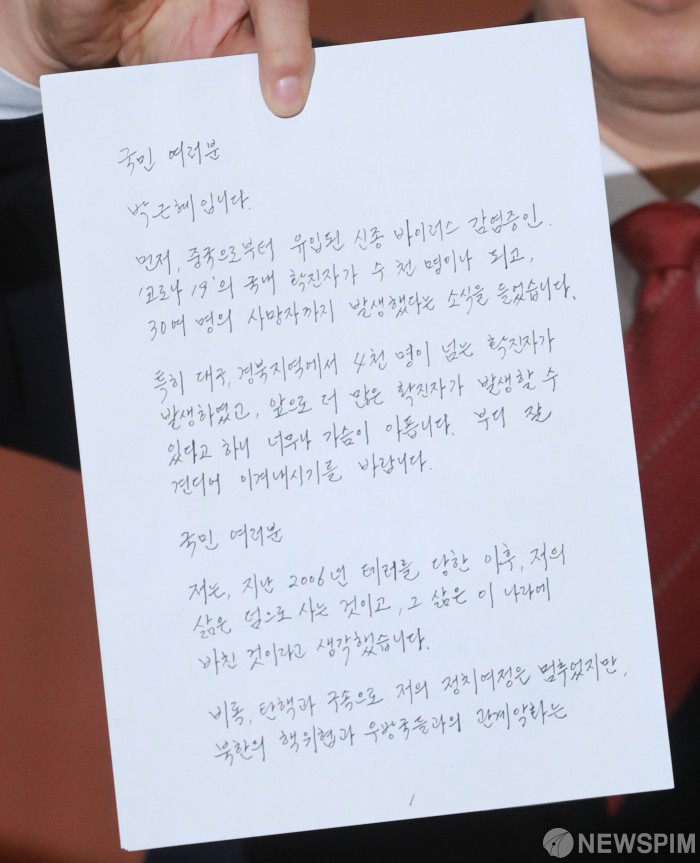 국민 여러분
박근혜입니다.
먼저, 중국으로부터 유입된 신종 바이러스 감염증인
'코로나 19'의 국내 확진자가 수 천 명이나 되고,
30여 명의 사망자까지 발생했다는 소식을 들었습니다.
특히 대구, 경북지역에서 4천 명이 넘는 확진자가
발생하였고, 앞으로 더 많은 확진자가 발생할 수
있다고 하니 너무나 가슴이 아픕니다. 부디 잘
견디어 이겨내시기를 바랍니다.
국민 여러분
저는, 지난 2006년 테러를 당한 이후, 저의
삶은 덤으로 사는 것이고, 그 삶은 이 나라에
바친 것이라고 생각했습니다.
비록, 탄핵과 구속으로 저의 정치여정은 멈추었지만,
북한의 핵위협과 우방국들과의 관계악화는
1
NEWSPIM